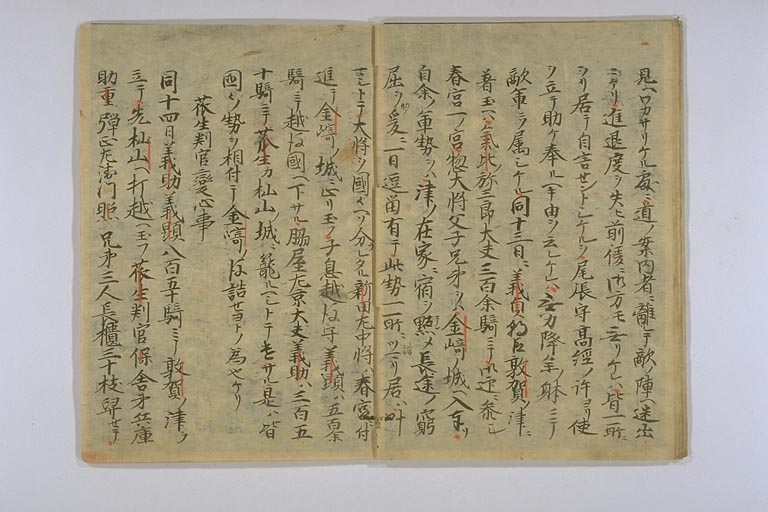 見ヘワカサリケル處ニ道ノ案内者ニ離レテ敵ノ陣ヘ迷出
ニケリ進退度ヲ失ヒ前後ニ御方モ无リケレハ皆一所ニ
リ居テ自害セントシケルヲ尾張守高經ノ許ヨリ使
ヲ立テ助ケ奉ルヘキ由ヲ云ケレハ无力降人ノ躰ニテ
敵軍ニ属シケル同十三日ニ義貞朝臣敦賀ノ津ニ
著玉ヘハ氣比弥三郎大夫三百余騎ニテ御迎ニ参シ
春宮一ノ宮惣大将父子兄弟ヲ金﨑ノ城ヘ入奉リ
自余ノ軍勢ヲハ津ノ在家ニ宿ヲ點メ長途ノ窮
屈ヲ爰ニ一日逗留有テ此勢一所ニツニリ居ハ叶
シトテ大将ヲ國々ヘソ分レタル新田左中将ハ春宮ニ付
進テ金﨑ノ城ニ止リ玉フ子息越後守義顕ハ五百余
騎ニテ越後國ヘ下サル脇屋左京大夫義助ハ三百五
十騎ニテ荻生カ杣山ノ城ニ籠ルヘシトテ是ハ皆
國々ノ勢ヲ相付テ金﨑ノ後詰セヨトノ為也ケリ
荻生判官變心事
同十四日義助義顕八百五十騎ニテ敦賀ノ津ヲ
立テ先杣山ヘ打越ヘ玉フ荻生判官保舎弟兵庫
助重弾正左衛門照兄弟三人長櫃三十枝舁セテ